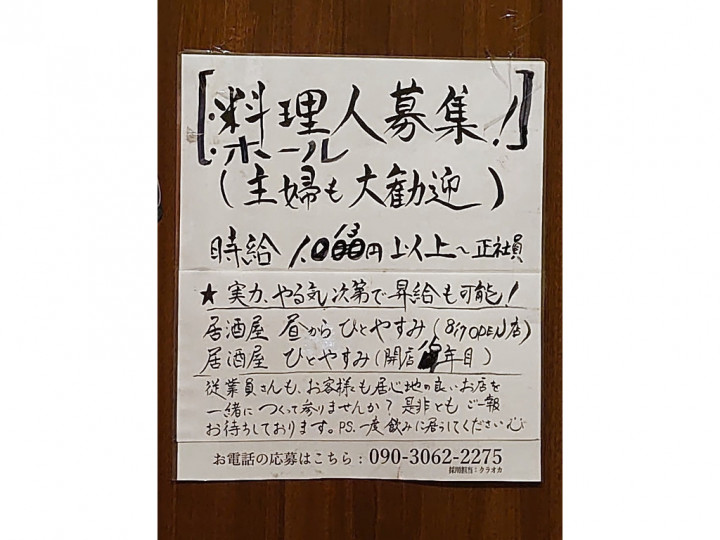 [・料理人募集!]
・ホール
(主婦も大歓迎)
時給 1,000円以上~正社員
★ 実力、やる気次第で昇給も可能!
居酒屋 昼からひとやすみ(8/7 OPEN店)
居酒屋 ひとやすみ(開店 年目)
従業員さんも、お客様も居心地の良いお店を
一緒につくって参りませんか? 是非とも ご一報
お待ちしております。P.S.一度飲みに居らしてください
お電話の応募はこちら:090-3062-2275
採用担当:クラオカ